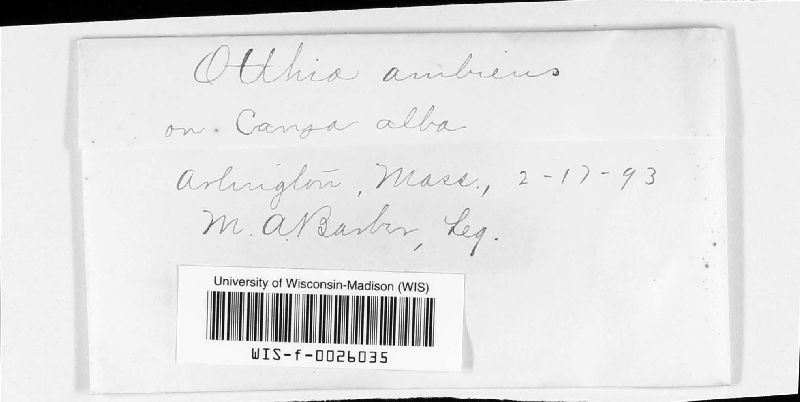 Otthia ambiens
on Carya alba
Arlington, Mass., 2-17-93
M. A. Barber, Leg.
University of Wisconsin-Madison (WIS)
WIS-f-0026035